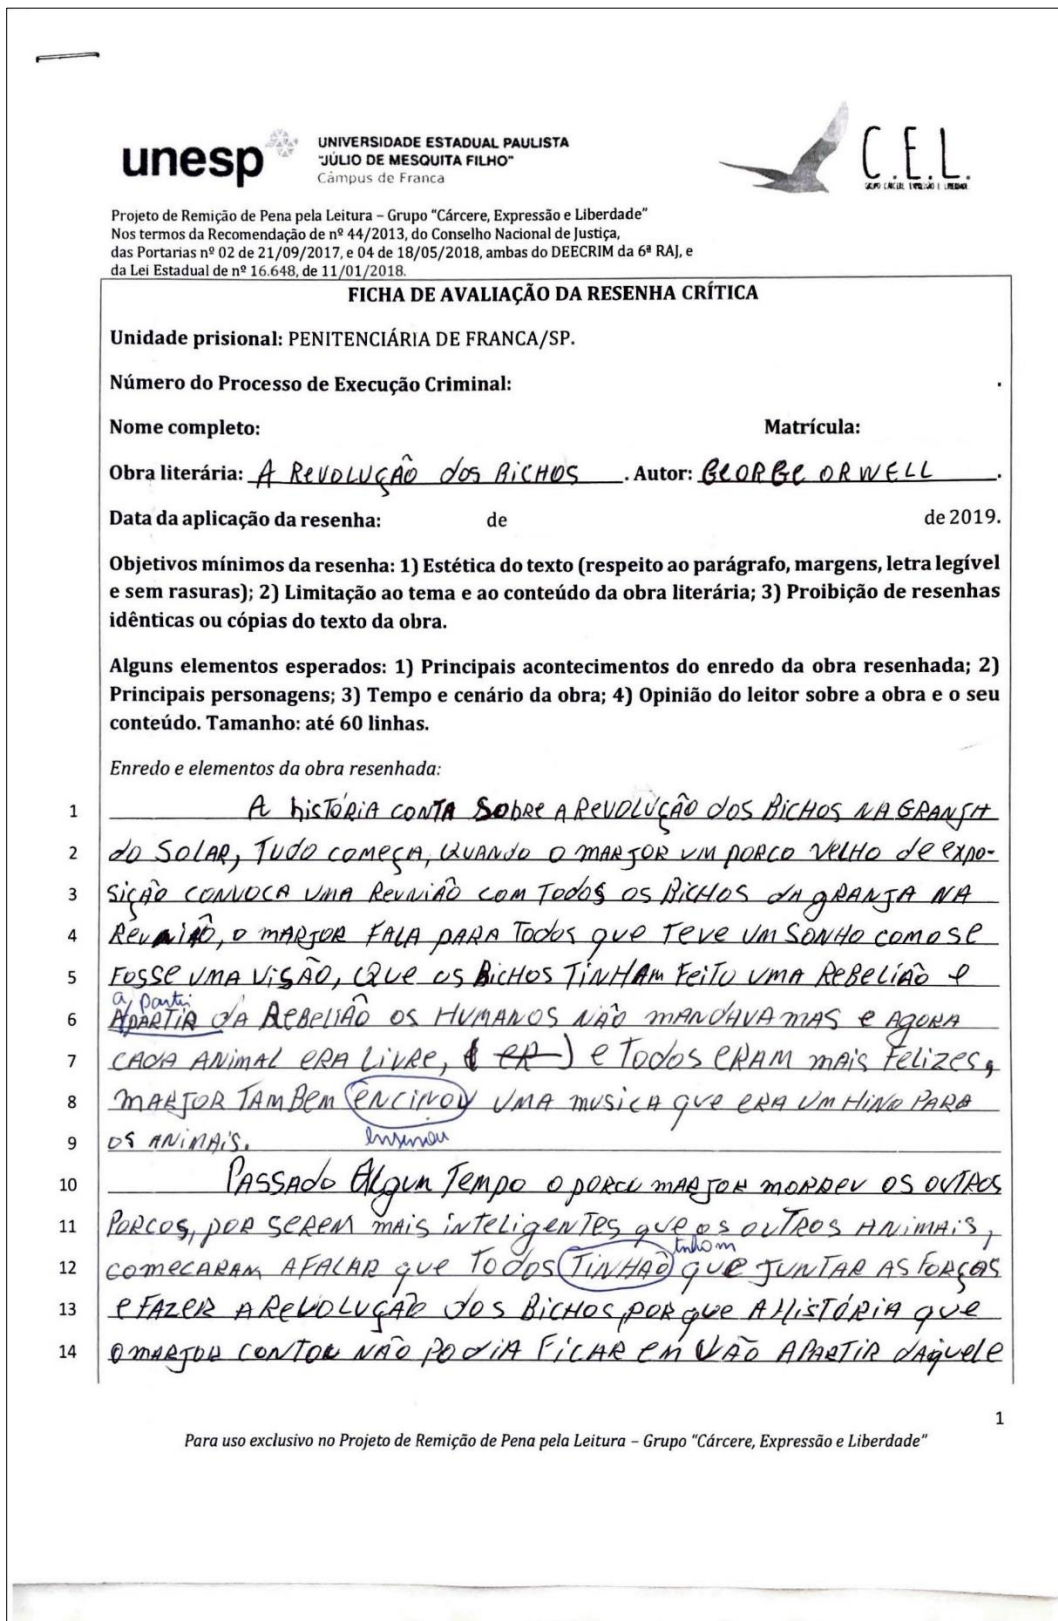 unesp
UNIVERSIDADE ESTADUAL PAULISTA
"JÚLIO DE MESQUITA FILHO"
Câmpus de Franca
C.E.L.
GRUPO CÁRCERE, EXPRESSÃO E LIBERDADE
Projeto de Remição de Pena pela Leitura – Grupo "Cárcere, Expressão e Liberdade"
Nos termos da Recomendação de nº 44/2013, do Conselho Nacional de Justiça,
das Portarias nº 02 de 21/09/2017, e 04 de 18/05/2018, ambas do DEECRIM da 6ª RAJ, e
da Lei Estadual de nº 16.648, de 11/01/2018.
FICHA DE AVALIAÇÃO DA RESENHA CRÍTICA
Unidade prisional: PENITENCIÁRIA DE FRANCA/SP.
Número do Processo de Execução Criminal: .
Nome completo: Matrícula:
Obra literária: A REVOLUÇÃO dos BICHOS . Autor: GEORGE ORWELL .
Data da aplicação da resenha: de de 2019.
Objetivos mínimos da resenha: 1) Estética do texto (respeito ao parágrafo, margens, letra legível
e sem rasuras); 2) Limitação ao tema e ao conteúdo da obra literária; 3) Proibição de resenhas
idênticas ou cópias do texto da obra.
Alguns elementos esperados: 1) Principais acontecimentos do enredo da obra resenhada; 2)
Principais personagens; 3) Tempo e cenário da obra; 4) Opinião do leitor sobre a obra e o seu
conteúdo. Tamanho: até 60 linhas.
Enredo e elementos da obra resenhada:
1 A hISTÓRIA CONTA SOBRE A REVOLUÇÃO dOS BICHOS NA GRANJA
2 do SOLAR, TUDO COMEÇA, QUANDO O MARJOR UM PORCO VELHO de expo-
3 SIÇÃO CONVOCA UMA REUNIÃO COM TodoS OS BICHOS dA gRANJA NA
4 REUNIÃO, O MARJOR FALA PARA TodoS que TEVE UM SONHO COMO SE
5 FOSSE UMA VISÃO, QUE OS BICHOS TINHAM FEITO UMA REBELIÃO e
a partir
6 APARTIR dA REBELIÃO OS HUMANOS NÃO MANDAVA MAS e AGORA
7 CADA ANIMAL ERA LIVRE, ( ER ) e TodoS ERAM MAIS FELIZES,
8 MARJOR TAMBEM ENCINOU UMA MUSICA que ERA UM HINO PARA
9 OS ANIMAIS.
ensinou
10 PASSADO ALGUM TEMPO O PORCO MARJOR MORREU OS OUTROS
11 PORCOS, POR SEREM MAIS INTELIGENTES que OS OUTROS ANIMAIS,
tinham
12 COMECARAM A FALAR que TODOS TINHAO QUE JUNTAR AS FORÇAS
13 e FAZER A REVOLUÇÃO dOS BICHOS, PORque A HISTÓRIA que
14 O MARJOR CONTOU NÃO POdIA FICAR EM VÃO APARTIR dAquele
1
Para uso exclusivo no Projeto de Remição de Pena pela Leitura – Grupo "Cárcere, Expressão e Liberdade"